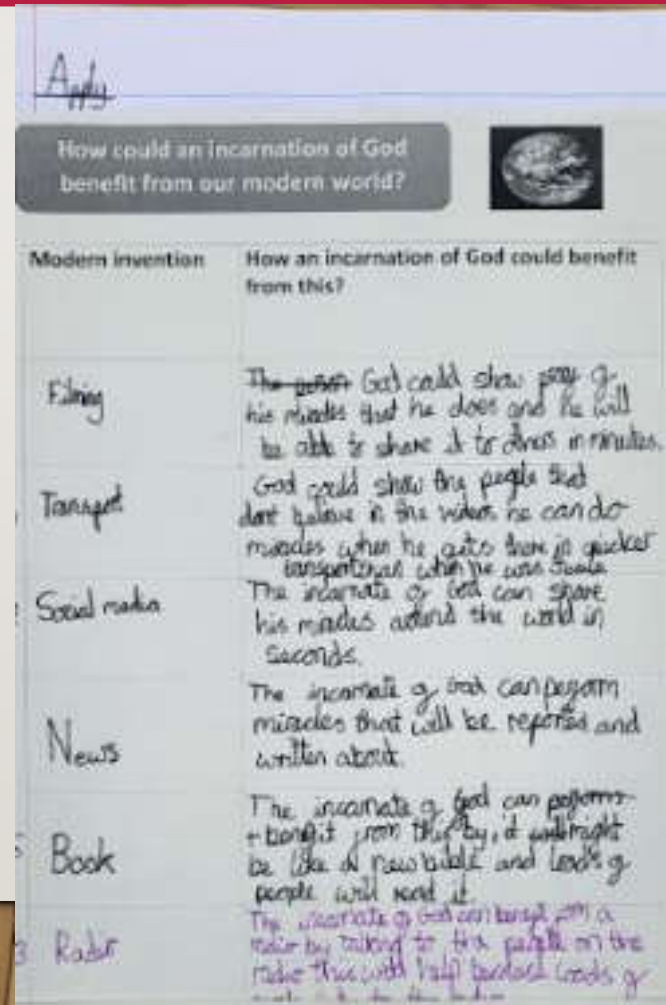 Apply
How could an incarnation of God
benefit from our modern world?
Modern invention
How an incarnation of God could benefit
from this?
Filming
God could show of
his miracles that he does and he will
be able to share it to others in minutes.
Transport
God could show the people that
dont believe in the videos he can do
miracles when he gets there in quicker
when he was
Social media
The incarnate of God can share
his miracles around the world in
seconds.
News
The incarnate of God can perform
miracles that will be reported and
written about.
Book
The incarnate of God can
benefit from this by, it might
be like a new bible and loads of
people will read it
3
Radio
The incarnate of God can benefit from a
radio by talking to the people on the
radio this will help because loads of